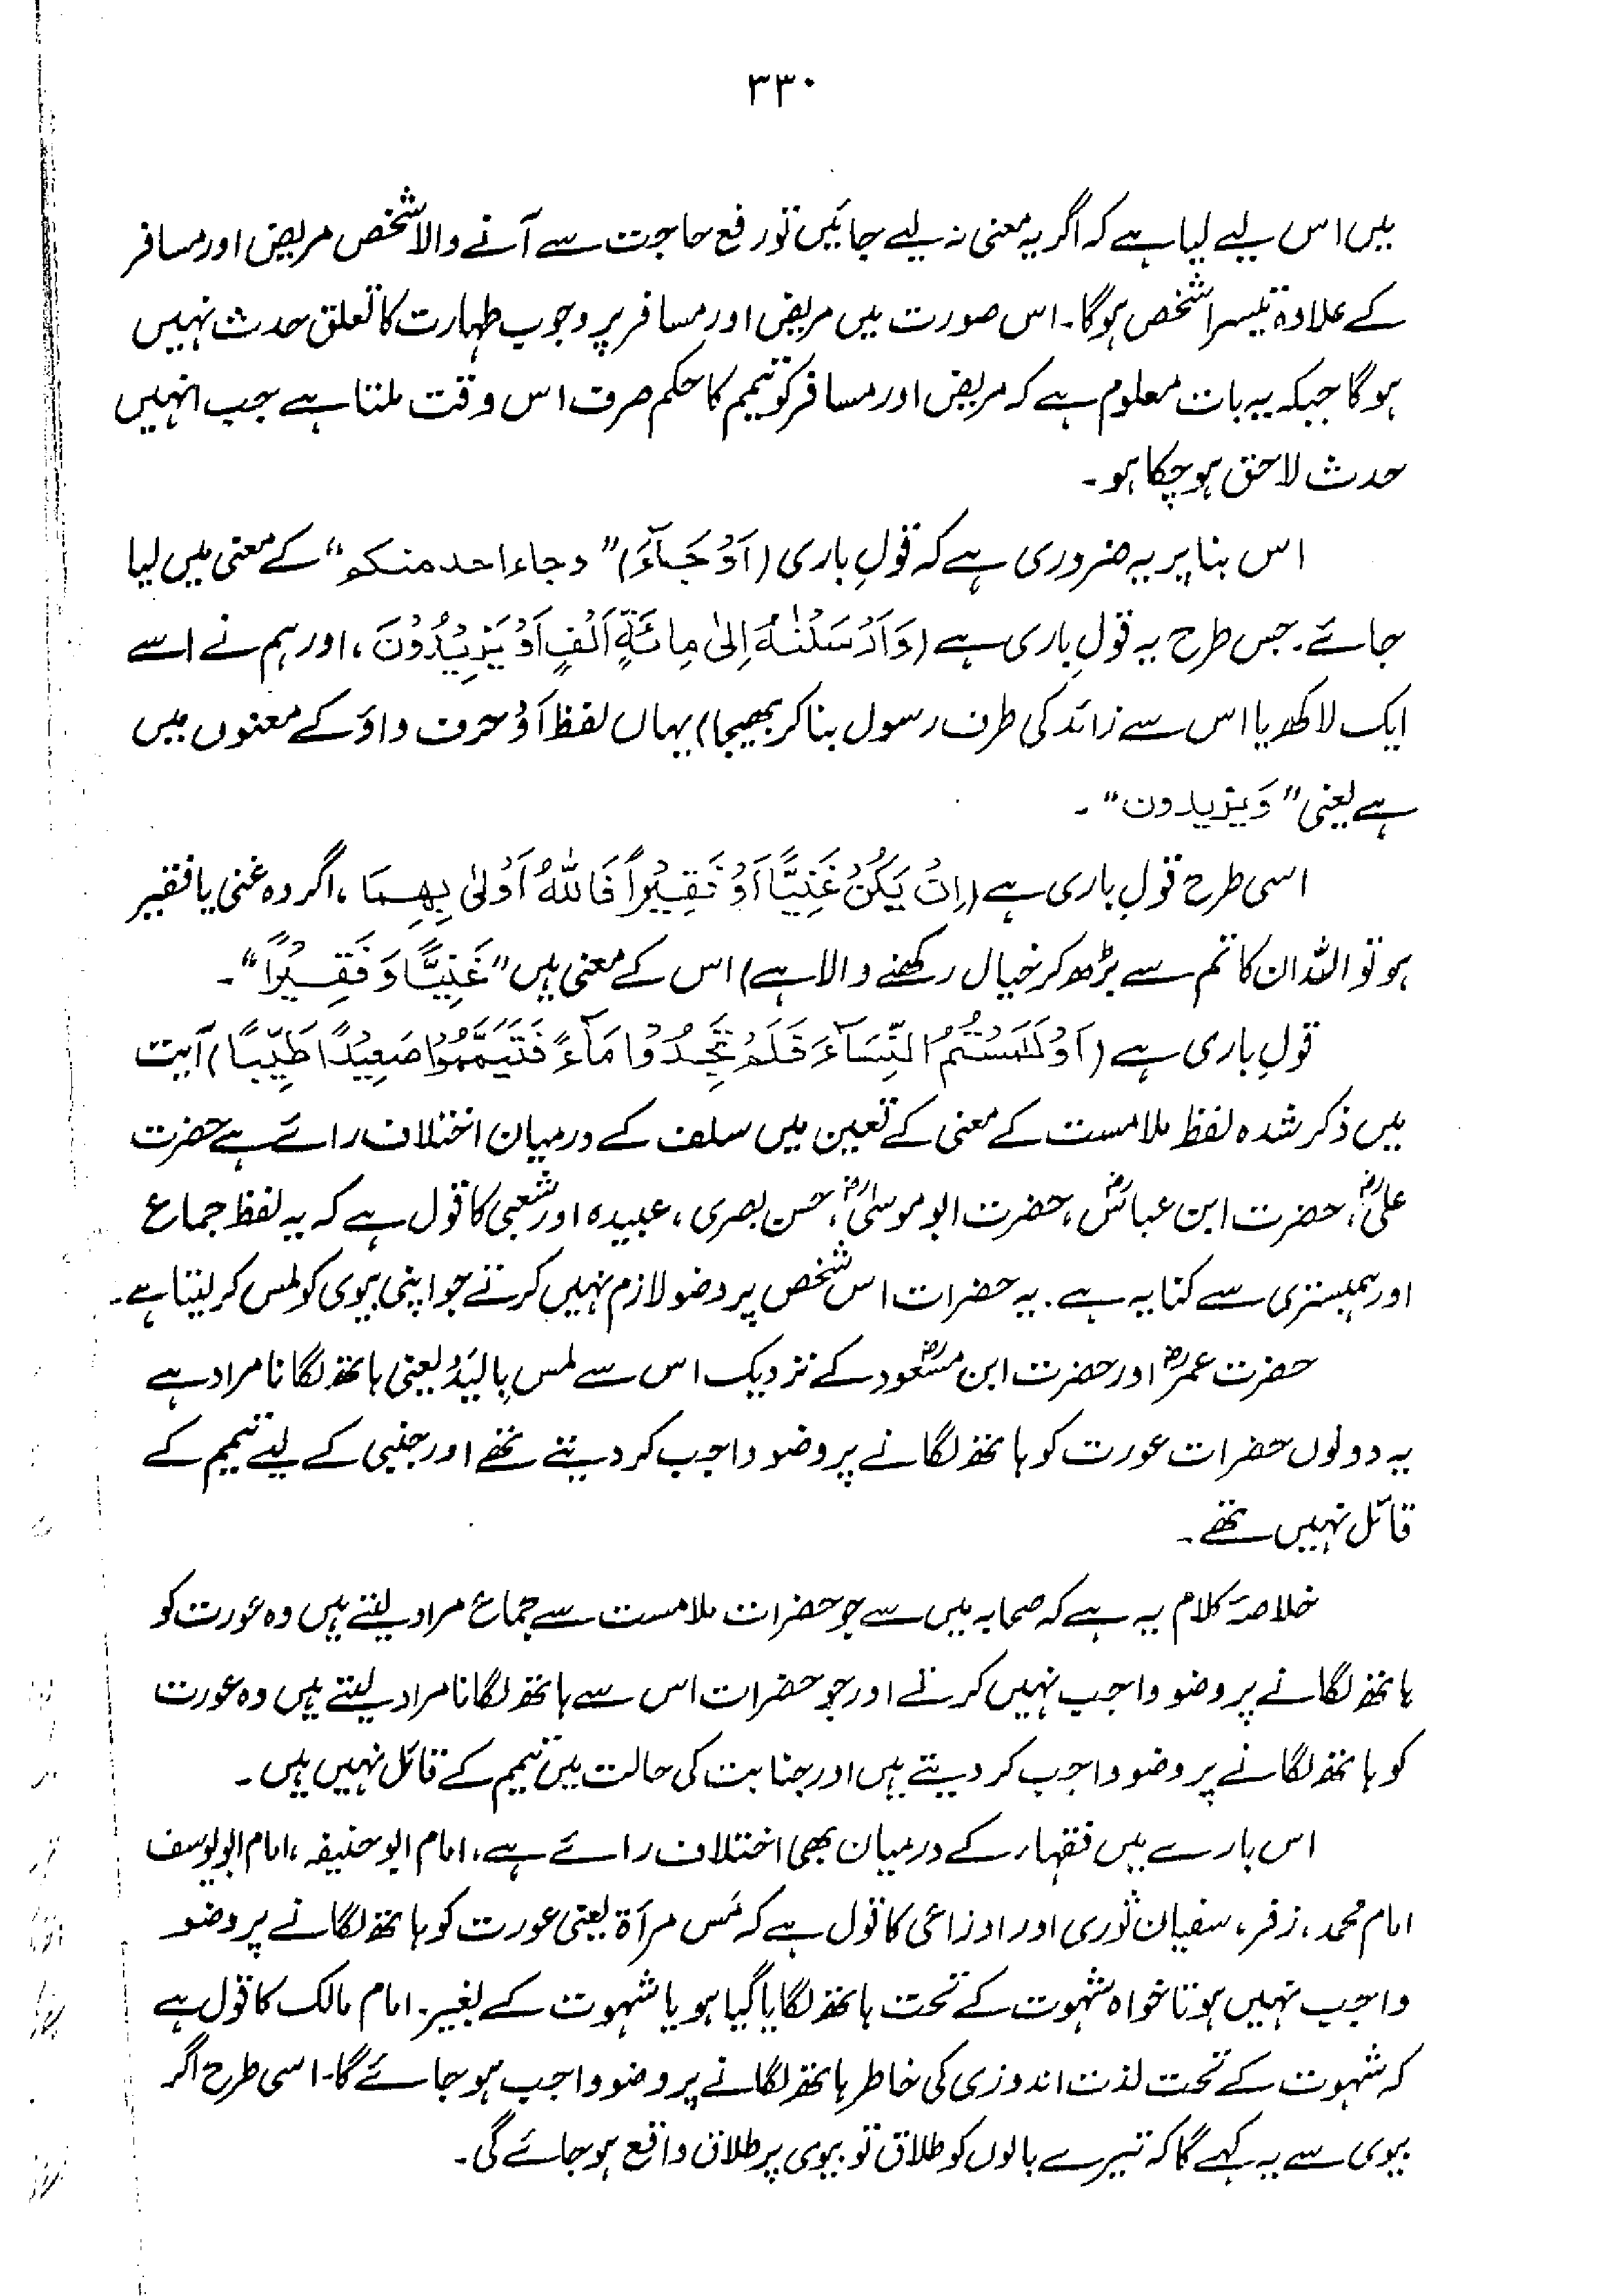 ۳۳۰
میں اس لیے لیا ہے کہ اگر یہ معنی نہ لیے جائیں تو رفع حاجت سے آنے والا شخص مریض اور مسافر
کے علاوہ تیسرا شخص ہوگا۔ اس صورت میں مریض اور مسافر پر وجوب طہارت کا تعلق حدث نہیں
ہوگا جبکہ یہ بات معلوم ہے کہ مریض اور مسافر کو تیمم کا حکم صرف اس وقت ملتا ہے جب انہیں
حدث لاحق ہو چکا ہو۔
اس بنا پر یہ ضروری ہے کہ قولِ باری (اَوْ جَآءَ) "وجاء احد منکم" کے معنی میں لیا
جائے۔ جس طرح یہ قولِ باری ہے (وَاَرْسَلْنٰهُ اِلیٰ مِائَةِ اَلْفٍ اَوْ یَزِیْدُوْنَ، اور ہم نے اسے
ایک لاکھ یا اس سے زائد کی طرف رسول بنا کر بھیجا) یہاں لفظ اَوْ حرف واؤ کے معنوں میں
ہے یعنی "وَیزیدون"۔
اسی طرح قولِ باری ہے (اِنْ یَکُنْ غَنِیًّا اَوْ فَقِیْرًا فَاللّٰهُ اَوْلیٰ بِهِمَا، اگر وہ غنی یا فقیر
ہو تو اللہ ان کا تم سے بڑھ کر خیال رکھنے والا ہے) اس کے معنی ہیں "غَنِیًّا وَ فَقِیْرًا"۔
قولِ باری ہے (اَوْ لٰمَسْتُمُ النِّسَآءَ فَلَمْ تَجِدُوْا مَآءً فَتَیَمَّمُوْا صَعِیْدًا طَیِّبًا) آیت
میں ذکر شدہ لفظ ملامست کے معنی کے تعین میں سلف کے درمیان اختلاف رائے ہے حضرت
علیؓ، حضرت ابن عباسؓ، حضرت ابو موسیٰؓ، حسن بصری، عبیدہ اور شعبی کا قول ہے کہ یہ لفظ جماع
اور ہمبستری سے کنایہ ہے۔ یہ حضرات اس شخص پر وضو لازم نہیں کرتے جو اپنی بیوی کو لمس کر لیتا ہے۔
حضرت عمرؓ اور حضرت ابن مسعودؓ کے نزدیک اس سے لمس بِالیَدْ یعنی ہاتھ لگانا مراد ہے
یہ دونوں حضرات عورت کو ہاتھ لگانے پر وضو واجب کر دیتے تھے اور جنبی کے لیے تیمم کے
قائل نہیں تھے۔
خلاصۂ کلام یہ ہے کہ صحابہ میں سے جو حضرات ملامست سے جماع مراد لیتے ہیں وہ عورت کو
ہاتھ لگانے پر وضو واجب نہیں کرتے اور جو حضرات اس سے ہاتھ لگانا مراد لیتے ہیں وہ عورت
کو ہاتھ لگانے پر وضو واجب کر دیتے ہیں اور جنابت کی حالت میں تیمم کے قائل نہیں ہیں۔
اس بارے میں فقہاء کے درمیان بھی اختلاف رائے ہے، امام ابو حنیفہ، امام ابو یوسف
امام محمد، زفر، سفیان ثوری اور اوزاعی کا قول ہے کہ مَس مرأۃ یعنی عورت کو ہاتھ لگانے پر وضو
واجب نہیں ہوتا خواہ شہوت کے تحت ہاتھ لگایا گیا ہو یا شہوت کے بغیر۔ امام مالک کا قول ہے
کہ شہوت کے تحت لذت اندوزی کی خاطر ہاتھ لگانے پر وضو واجب ہو جائے گا۔ اسی طرح اگر
بیوی سے یہ کہے گا کہ تیرے بالوں کو طلاق تو بیوی پر طلاق واقع ہو جائے گی۔